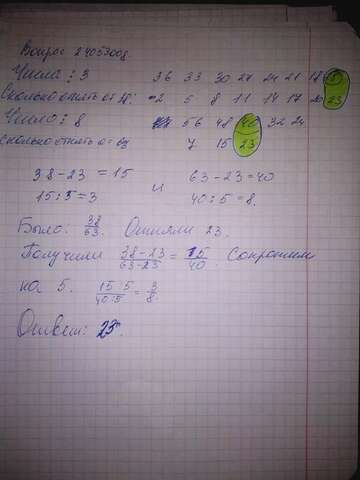 Вопрос 24053008
Числа : 3 36 33 30 27 24 21 18 15
Сколько отнять от 38: 2 5 8 11 14 17 20 23
Число : 8 56 48 40 32 24
Сколько отнять от 63 7 15 23
38-23=15 и 63-23=40
15:5=3 40:5=8.
Было: 38/63. Отняли 23.
Получили 38-23/63-23 = 15/40. Сократим
на 5. 15:5/40:5 = 3/8.
Ответ: 23.